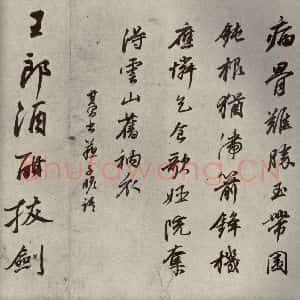 病骨難勝玉帶圍
鈍根猶滯箭鋒機
應憐乞食歌姬院奪
得雲山舊衲衣
王郎酒酣拔劍
shufawang.CN